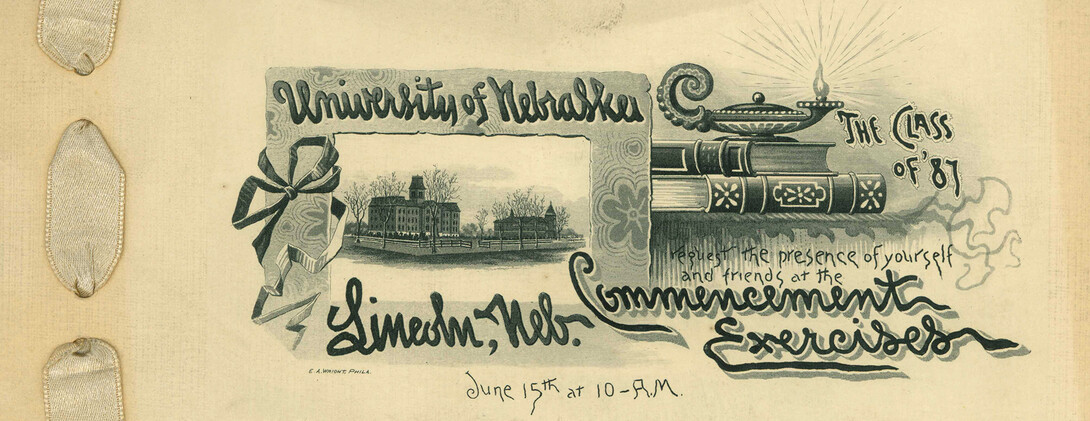 University of Nebraska
Lincoln, Neb.
THE CLASS
OF '87
request the presence of yourself
and friends at the
Commencement
Exercises
E. A. WRIGHT, PHILA.
June 15th at 10-A.M.